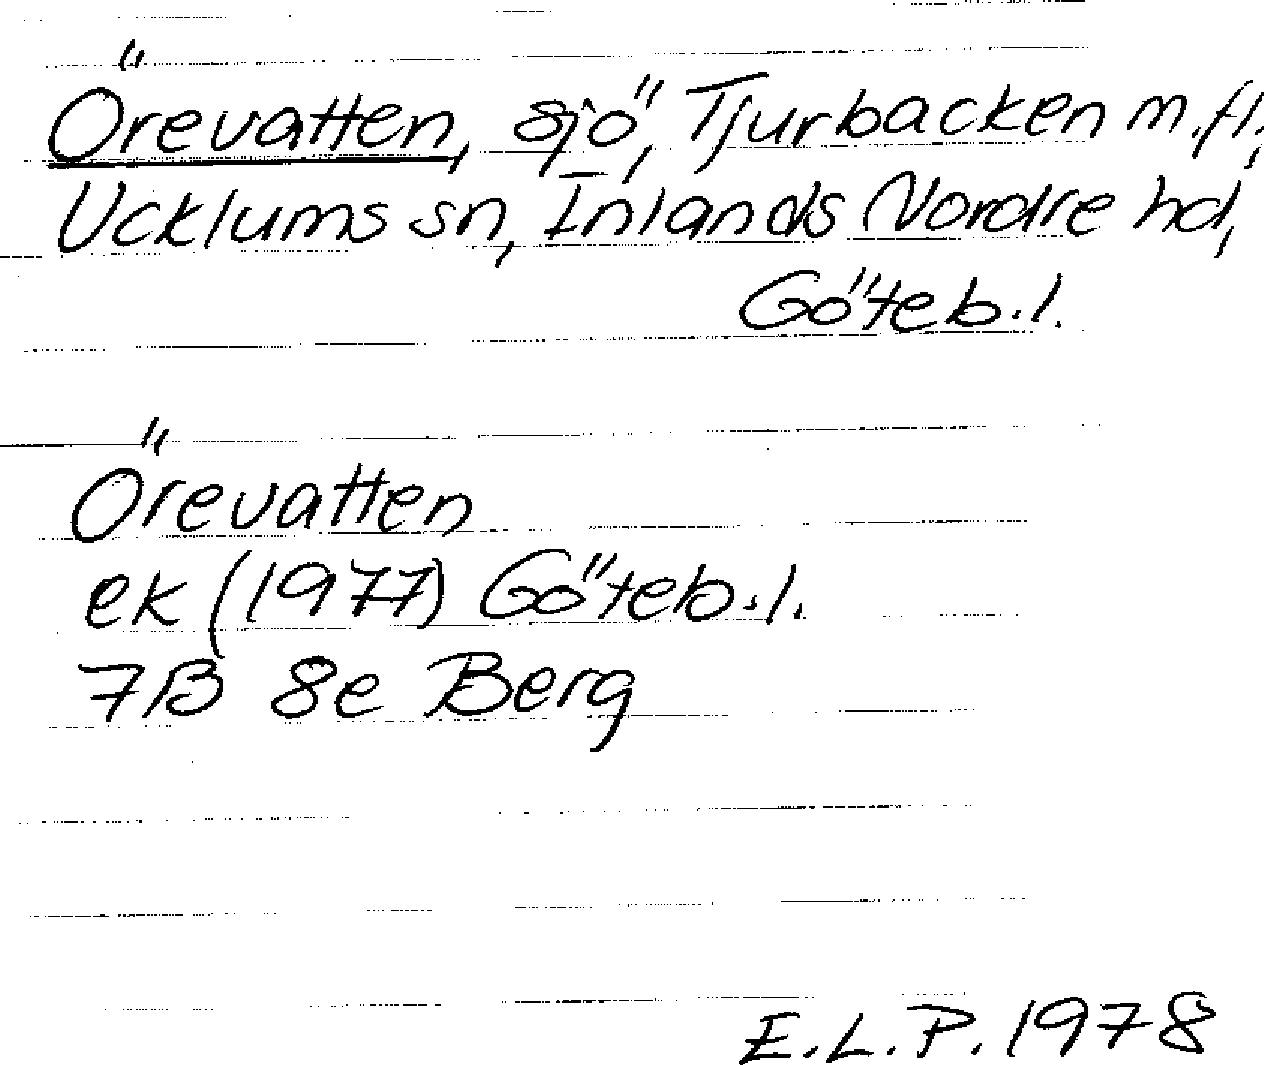 Örevatten, sjö, Tjurbacken m.fl.,
Ucklums sn, Inlands Nordre hd,
Göteb.l.
Örevatten
ek (1977) Göteb.l.
7B 8e Berg
E.L.P. 1978